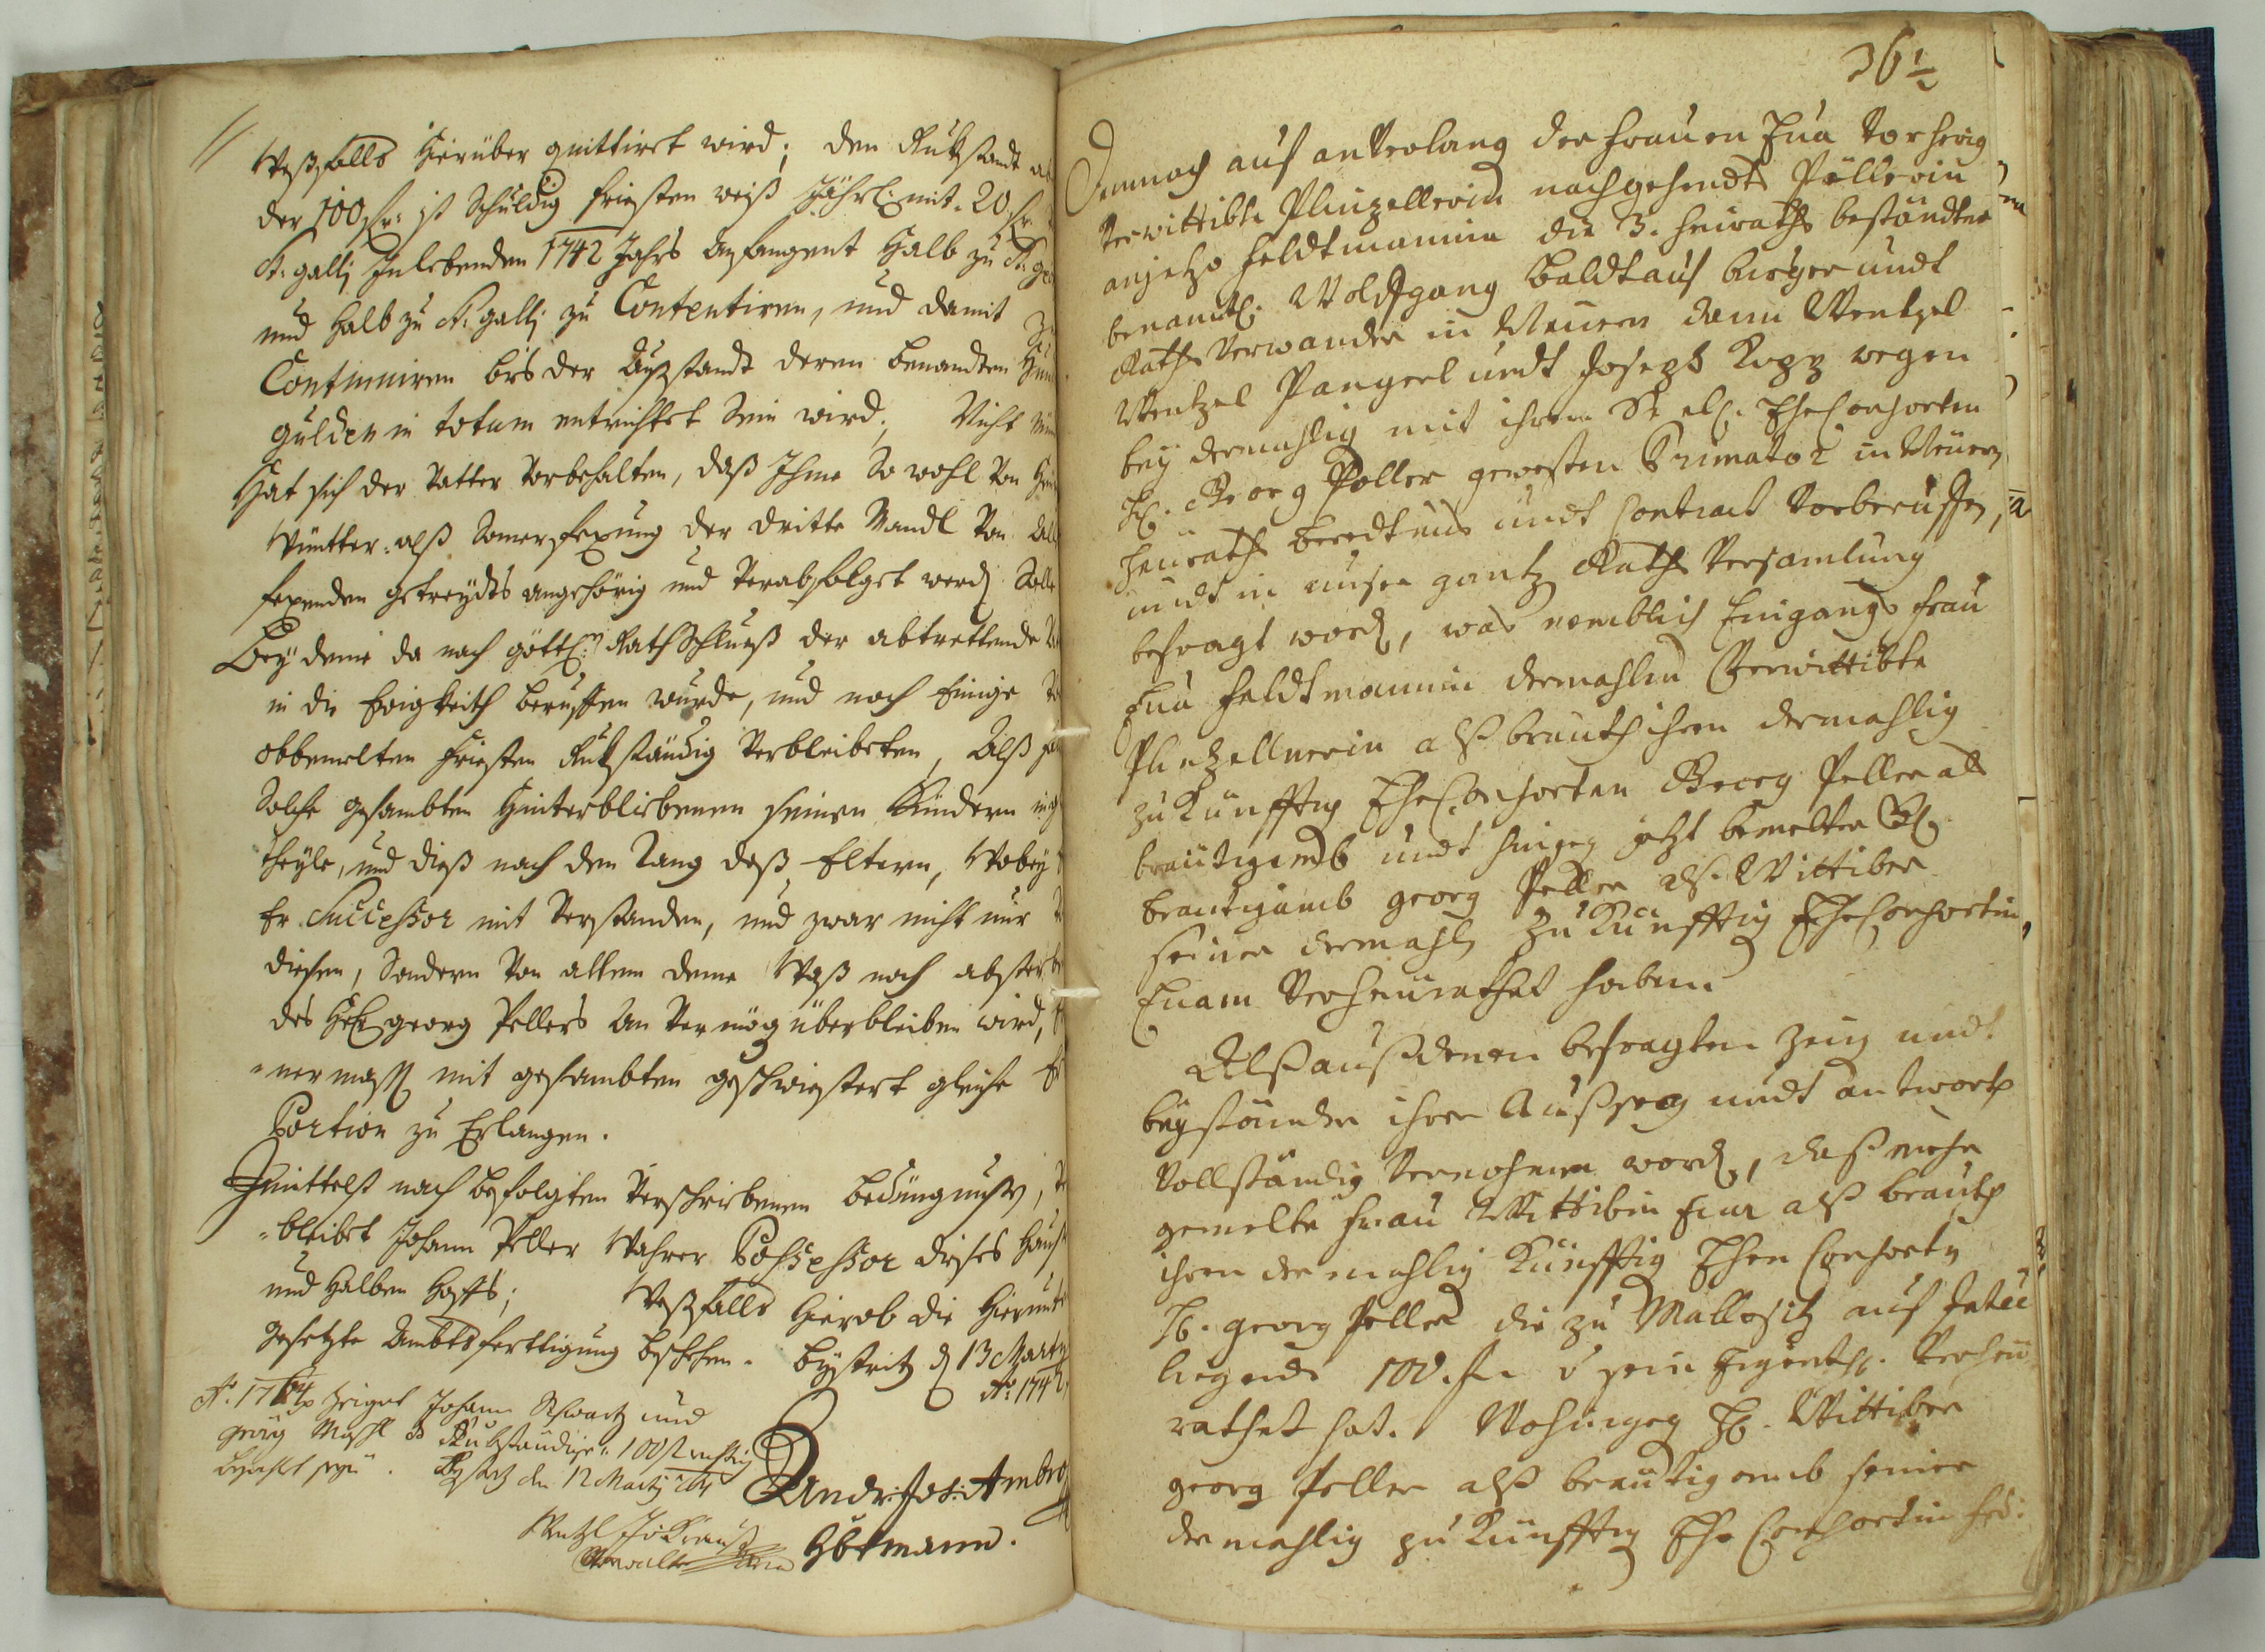 Weßfalls hierüber quittiret wird; den Rukstandt
der 100 fl: ist Schuldig fristen weiß Jährl: mit 20 fl.
St: Gallj Inlebenden 1742 Jahrs anfangent halb zu St:
und halb zu St: Gallj zu Contentiren, und damit
Continuiren bis der Außstandt deren benandten
Gulden in totum entrichtet sein wird; Nicht
Hat sich der Vatter vorbehalten, daß Ihme So wohl von
Wintter- alß Somerfexung der dritte Mandl von
fexenden getreydts angehörig und verabfolget werd. Solle
Bey deme da nach göttl: RathSchlueß der abtrettende
in die Ewigkeith beruffen wurde, und noch Einige
obbemelten fristen Rukständig verbleibeten, Alß
Solche gesambten Hinterbliebenen seinen Kündern
theyle, und dieß nach dem Rang deß Eltern, Wobey
Er Successor mit verstanden, und zwar nicht nur
diesen, Sondern von allem deme Waß nach
des Georg Pellers an vermög überbleiben wird,
-ner mass mit gesambten geschwistert gleiche
Portion zu Erlangen.
Immittelst nach befolgten verschriebenen bedüngnuße,
-bleibet Johann Peller Wahrer Possessor dieses Hauß
und halben Hoffs; Weßfalls hierob die hierunt
gesetzte Ambtsferttigung beschehen. Bystritz d 13 Marty
Ao: 174
Ao. 17 zeiget Johann Schwartz und
Georg das Rukständige 100 richtig
bezahlt seye. Bystritz den 12 Martj
Andr: Jos: Ambro
Hbtmann.
Wentzl
36 1/2
Demnach auf anverlang der Frauen Eua vorherig
verwittibte Plinzellerin nachgehendts Pöllerin
anjetzo Feldtmannin die 3. heüraths beständer
benantl: Wolfgang Baldtauf burger undt
Raths Verwander in Neuern dann Wentzel
Wentzel Pangerl undt Joseph Kopp wegen
bey dermahlig mit ihrem EheConsorten
H. Georg Poller gewesten Primator in Neuern
heuraths beredtnus undt Contract vorberuffen,
undt in unser gantz Raths Versamlung
befragt word, was nemblich Eingangs Frau
Eua Feldtmannin dermahlen Verwittibte
Plintzellnerin alß brauth ihren dermahlig
zu Künfftig EheConsorten Georg Peller als
breütigamb undt hingeg jetzt bemelter
breutigamb Georg Peller als Wittiber
seiner dermahl zu Künfftig EheConsortin
Euam verheürathet haben
Alß auß denen befragten Zeug undt
beyständer ihrer Außsag undt antworth
vollständig vernohmen word, daß mehr
gemelte Frau Wittibin Eua alß brauth
ihren dermahlig Künfftig Ehe Consorten
H. Georg Peller die zu Mallositz auf
liegende 100. fl. sein Eigenthl. verheü
rathet hat. Wohingeg H. Wittiber
Georg Peller alß breutigamb seiner
dermahlig zu Künfftig Ehe Consortin